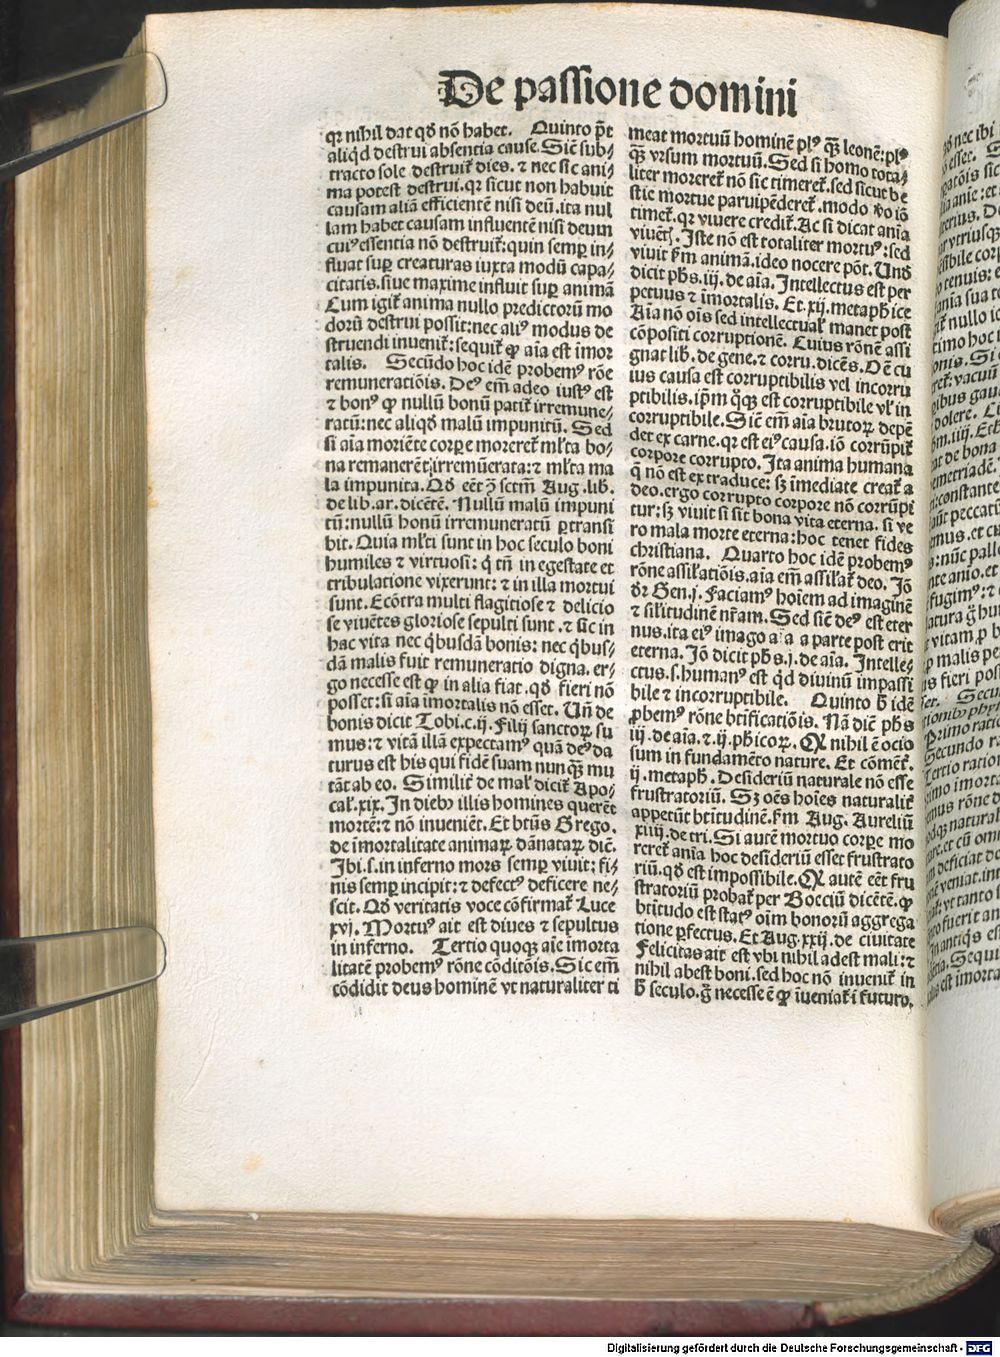 De passione domini
qr nihil dat qd̄ nō habet. Quinto p̄t
aliqd destrui absentia cause. Sic̄ sub-
tracto sole destruit̄ dies. ⁊ nec sic ani/
ma potest destrui. qr sicut non habuit
causam aliā efficientē nisi deū. ita nul
lam habet causam influentē nisi deum
cuiꝰ essentia nō destruit̄: quin semꝑ in/
fluat suꝑ creaturas iuxta modū capa/
citatis. siue maxime influit suꝑ animā
Cum igit̄ anima nullo predictorū mo
dorū destrui possit: nec aliꝰ modus de
struendi inuenit̄: sequit̄ ꝙ aīa est imor
talis. Secūdo hoc idē probemꝰ rōe
remuneratiōis. Deꝰ em̄ adeo iustꝰ est
⁊ bonꝰ ꝙ nullū bonū patit̄ irremune/
ratū: nec aliqd malū impunitū. Sed
si aīa moriēte corꝑe moreret̄ ml̄ta bo/
na remanerēt irremūerata: ⁊ ml̄ta ma
la impunita. Qd̄ eēt ꝯ sctm̄ Aug. lib.
de lib. ar. dicētē. Nullū malū impuni
tū: nullū bonū irremuneratū ꝑtransi
bit. Quia ml̄ti sunt in hoc seculo boni
humiles ⁊ virtuosi: q̇ tn̄ in egestate et
tribulatione vixerunt: ⁊ in illa mortui
sunt. Ecōtra multi flagitiose ⁊ delicio
se viuētes gloriose sepulti sunt. ⁊ sic̄ in
hac vita nec q̇busdā bonis: nec q̇bus/
dā malis fuit remuneratio digna. er/
go necesse est ꝙ in alia fiat. qd̄ fieri nō
posset: si aīa imortalis nō esset. Un̄ de
bonis dicit Tobi. c. ij. Filij sanctoꝝ su
mus: ⁊ vitā illā expectamꝰ quā deꝰ da
turus est his qui fidē suam nunꝗ̄ mu
tāt ab eo. Similit̄ de mal̄ dicit̄ Apo/
cal̄. xix. In diebꝰ illis homines querēt
mortē: ⁊ nō inueniēt. Et btūs Grego.
de īmortalitate animaꝝ dānataꝝ dic̄.
Ibi. s. in inferno mors semꝑ viuit: fi/
nis semꝑ incipit: ⁊ defectꝰ deficere ne/
scit. Qd̄ veritatis voce cōfirmat̄ Luce
xvj. Mortuꝰ ait est diues ⁊ sepultus
in inferno. Tertio quoqꝫ aīe imorta
litatē probemꝰ rōne cōditōis. Sic em̄
cōdidit deus hominē vt naturaliter ti
meat mortuū hominē plꝰ ꝗ̄ leonē: plꝰ
ꝗ̄ vrsum mortuū. Sed si homo tota/
liter moreret̄ nō sic timeret̄. sed sicut be
stie mortue paruipēderet̄. modo ꝟo iō
timet̄. qr viuere credit̄. Ac si dicat anīa
viuētꝭ. Iste nō est totaliter mortuꝰ: sed
viuit ẜm animā. ideo nocere pōt. Und̄
dicit ph̄s. iij. de aīa. Intellectus est per
petuus ⁊ imortalis. Et. xij. metaph̄ice
Aīa nō oīs sed intellectual̄ manet post
cōpositi corruptionē. Cuius rōnē assi
gnat lib̄. de gene. ⁊ corru. dicēs. Om̄ē cu
ius causa est corruptibilis vel incorru
ptibilis. ip̄m q̊qꝫ est corruptibile vl̓ in
corruptibile. Sic̄ em̄ aīa brutoꝝ depē
det ex carne. qr est eiꝰ causa. iō corrūpit̄
corpore corrupto. Ita anima humana
q̄ nō est ex traduce: sꝫ īmediate creat̄ a
deo. ergo corrupto corpore nō corrūpi
tur: sꝫ viuit si sit bona vita eterna. si ve
ro mala morte eterna: hoc tenet fides
christiana. Quarto hoc idē probemꝰ
rōne assil̄atiōis. aīa em̄ assil̄at̄ deo. Iō
dr̄ Gen. j. Faciamꝰ hoīem ad imaginē
⁊ sil̄itudinē nr̄am. Sed sic̄ deꝰ est eter
nus. ita eiꝰ imago aīa a parte post erit
eterna. Iō dicit ph̄s. j. de aīa. Intelle/
ctus. s. humanꝰ est qd̄ diuinū impassi
bile ⁊ incorruptibile. Quinto h̄ idē
ꝓbemꝰ rōne btīficatiōis. Nā dic̄ ph̄s
iij. de aīa. ⁊. ij. ph̄icoꝝ. Qꝫ nihil ē ocio
sum in fundamēto nature. Et cōmēt̄.
ij. metaph̄. Desideriū naturale nō esse
frustratoriū. Sꝫ oēs hoīes naturalit̄
appetūt btītudinē. ẜm Aug. Aureliū
xiiij. de tri. Si autē mortuo corꝑe mo
reret̄ anīa hoc desideriū esset frustrato
riū. qd̄ est impossibile. Qꝫ autē eēt fru
stratoriū probat̄ per Boeciū dicētē. ꝙ
btītudo est statꝰ oīm bonorū aggrega
tione ꝑfectus. Et Aug. xxij. de ciuitate
Felicitas ait est vbi nihil adest mali: ⁊
nihil abest boni. sed hoc nō inuenit̄ in
h̄ seculo. g̊ necesse ē ꝙ īueniat̄ ī futuro.
Digitalisierung gefördert durch die Deutsche Forschungsgemeinschaft - DFG